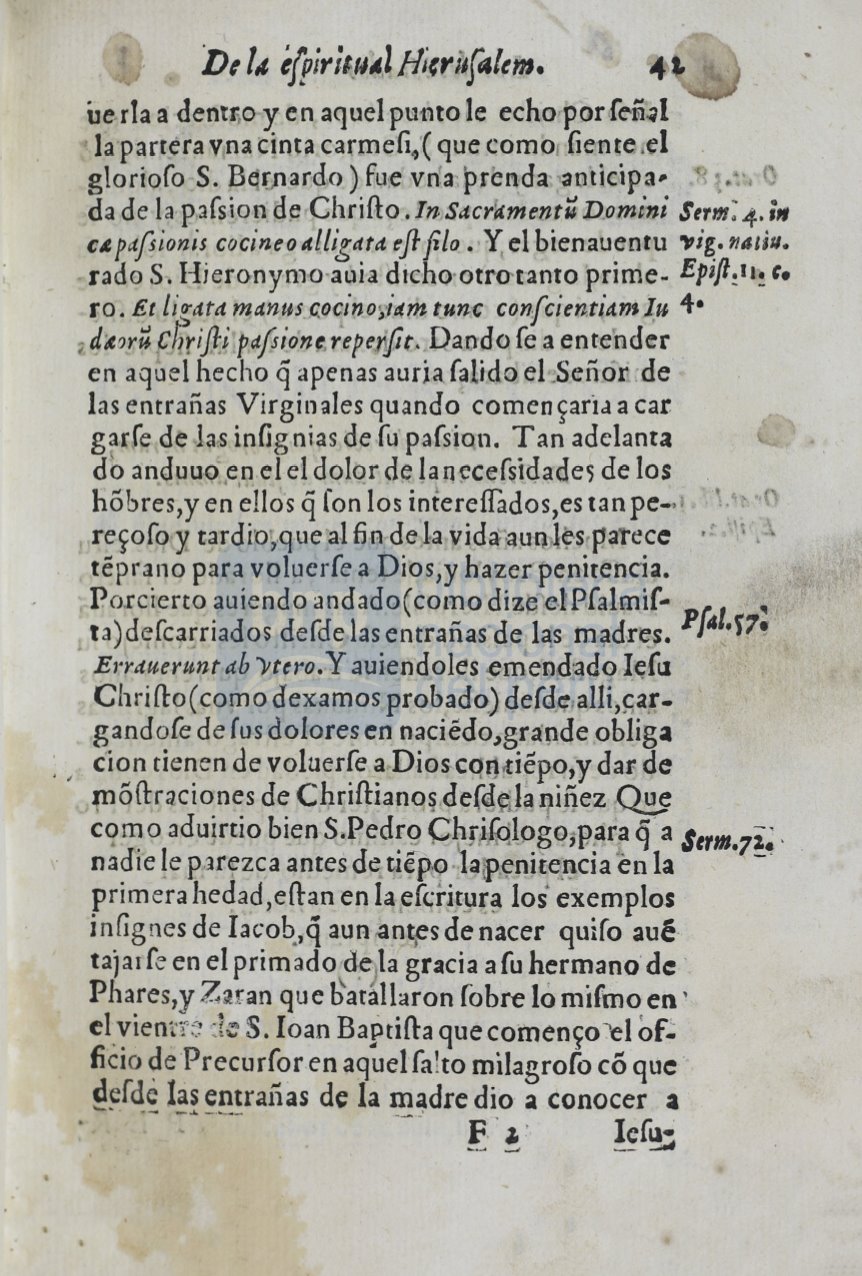 De la eſpiritual Hieruſalem. 42
uerla a dentro y en aquel punto le echo por ſeñal
la partera vna cinta carmeſi,(que como ſiente el
glorioſo S. Bernardo) fue vna prenda anticipa-
da de la paſsion de Chriſto. In Sacramentū Domini
Serm. 4. in
capaſsionis cocineo alligata eſt filo. Y el bienauentu
vig. natiu.
rado S. Hieronymo auia dicho otro tanto prime-
Epiſt. 11. c.
ro. Et ligata manus cocino,iam tunc conſcientiam Iu
4.
dæorū Chriſti paſsione reperſit. Dando ſe a entender
en aquel hecho q̃ apenas auria ſalido el Señor de
las entrañas Virginales quando començaria a car
garſe de las inſignias de ſu paſsion. Tan adelanta
do anduuo en el el dolor de la neceſsidades de los
hõbres,y en ellos q̃ ſon los intereſſados,es tan pe-
reçoſo y tardio,que al fin de la vida aun les parece
tẽprano para voluerſe a Dios,y hazer penitencia.
Porcierto auiendo andado(como dize el Pſalmiſ-
ta)deſcarriados deſde las entrañas de las madres.
Pſal.57.
Errauerunt ab vtero. Y auiendoles emendado Ieſu
Chriſto(como dexamos probado) deſde alli,car-
gandoſe de ſus dolores en naciẽdo,grande obliga
cion tienen de voluerſe a Dios con tiẽpo,y dar de
mõſtraciones de Chriſtianos deſde la niñez Que
como aduirtio bien S.Pedro Chriſologo,para q̃ a
Serm.72.
nadie le parezca antes de tiẽpo la penitencia en la
primera hedad,eſtan en la eſcritura los exemplos
inſignes de Iacob,q̃ aun antes de nacer quiſo auẽ
tajarſe en el primado de la gracia a ſu hermano de
Phares,y Zaran que batallaron ſobre lo miſmo en
el vientre de S. Ioan Baptiſta que començo el of-
ficio de Precurſor en aquel ſalto milagroſo cõ que
deſde las entrañas de la madre dio a conocer a
F 2 Ieſu-